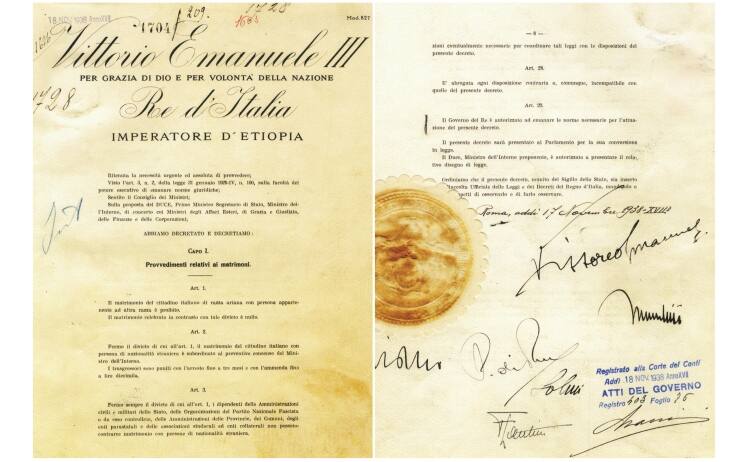 18 NOV. 1938 Anno XVII
1704
209.
1728
Mod. 827
1728
Vittorio Emanuele III
PER GRAZIA DI DIO E PER VOLONTA' DELLA NAZIONE
Re d'Italia
IMPERATORE D'ETIOPIA
Ritenuta la necessità urgente ed assoluta di provvedere;
Visto l'art. 3, n. 2, della legge 31 gennaio 1926-IV, n. 100, sulla facoltà del
potere esecutivo di emanare norme giuridiche;
Sentito il Consiglio dei Ministri;
Sulla proposta del DUCE, Primo Ministro Segretario di Stato, Ministro del-
l'Interno, di concerto coi Ministri degli Affari Esteri, di Grazia e Giustizia,
delle Finanze e delle Corporazioni;
ABBIAMO DECRETATO E DECRETIAMO:
CAPO I.
Provvedimenti relativi ai matrimoni.
Art. 1.
Il matrimonio del cittadino italiano di razza ariana con persona apparte-
nente ad altra razza è proibito.
Il matrimonio celebrato in contrasto con tale divieto è nullo.
Art. 2.
Fermo il divieto di cui all'art. 1, il matrimonio del cittadino italiano con
persona di nazionalità straniera è subordinato al preventivo consenso del Mini-
stro dell'Interno.
I trasgressori sono puniti con l'arresto fino a tre mesi e con l'ammenda fino
a lire diecimila.
Art. 3.
Fermo sempre il divieto di cui all'art. 1, i dipendenti delle Amministrazioni
civili e militari dello Stato, delle Organizzazioni del Partito Nazionale Fascista
o da esso controllate, delle Amministrazioni delle Provincie, dei Comuni, degli
Enti parastatali e delle associazioni sindacali ed enti collaterali non possono
contrarre matrimonio con persone di nazionalità straniera.
— 8 —
zioni eventualmente necessarie per coordinare tali leggi con le disposizioni del
presente decreto.
Art. 28.
E' abrogata ogni disposizione contraria o, comunque, incompatibile con
quelle del presente decreto.
Art. 29.
Il Governo del Re è autorizzato ad emanare le norme necessarie per l'attua-
zione del presente decreto.
Il presente decreto sarà presentato al Parlamento per la sua conversione
in legge.
Il Duce, Ministro dell'Interno proponente, è autorizzato a presentare il rela-
tivo disegno di legge.
Ordiniamo che il presente decreto, munito del Sigillo dello Stato, sia inserto
Ufficiale delle Leggi e dei Decreti del Regno d'Italia, mandando a
spetti di osservarlo e di farlo osservare.
Roma, addì 17 Novembre 1938-XVII°
Vittorio Emanuele
Mussolini
Solmi
Registrato alla Corte dei Conti
Addì 18 NOV. 1938 Anno XVII
ATTI DEL GOVERNO
Registro 403 Foglio